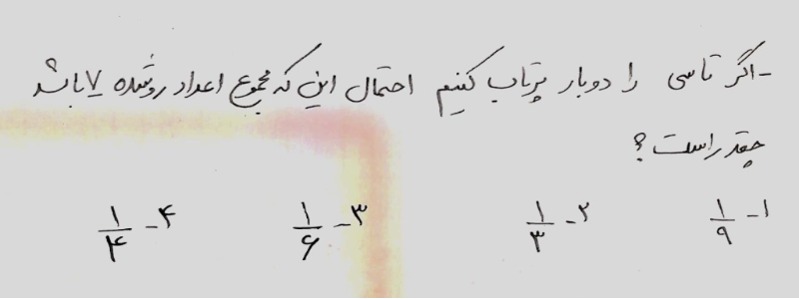 - اگر تاسی را دوبار پرتاب کنیم احتمال این که مجموع اعداد رو شده ۷ باشد
چقدر است؟
۱- ۱/۹ ۲- ۱/۳ ۳- ۱/۶ ۴- ۱/۴